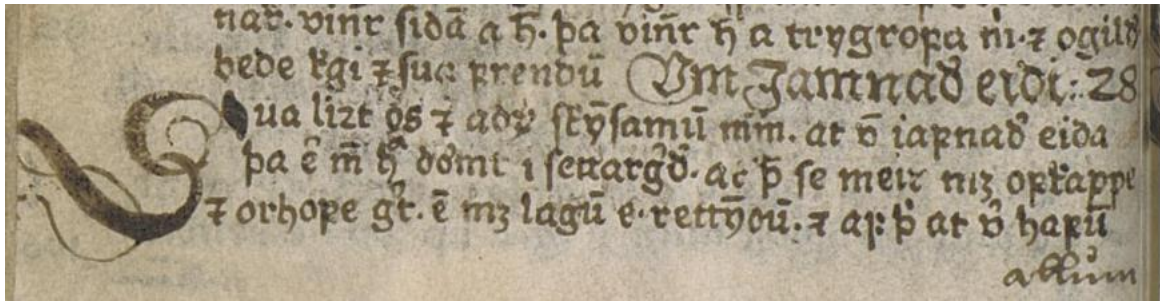 nar̃. vinr̄ sidā a h̄. þa vinr̄ h̄ a trygrofa m̄. ⁊ ogilld᷎
bede k̄gi ⁊ suc frendū Vm Jamnad᷎ eidi:: 28
Sua lizt os̄ ⁊ adꝛ̄ skȳsamū m̄m. at v̄ iafnad᷎ eida
þa ē m̄ hᷓ do᷎mt i settarg᷎d᷎. at þ̄ se meir mꝫ ofkᷓppe
⁊ orhofe g᷎t. ē mꝫ lagū e. rettȳdū. ⁊ af þ̄ at v̄ hafū
ollum